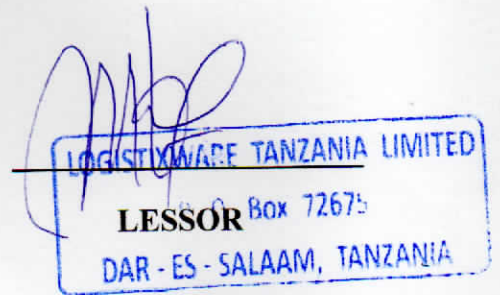 LOGISTIXWARE TANZANIA LIMITED
P.O. Box 72675
LESSOR
DAR - ES - SALAAM, TANZANIA